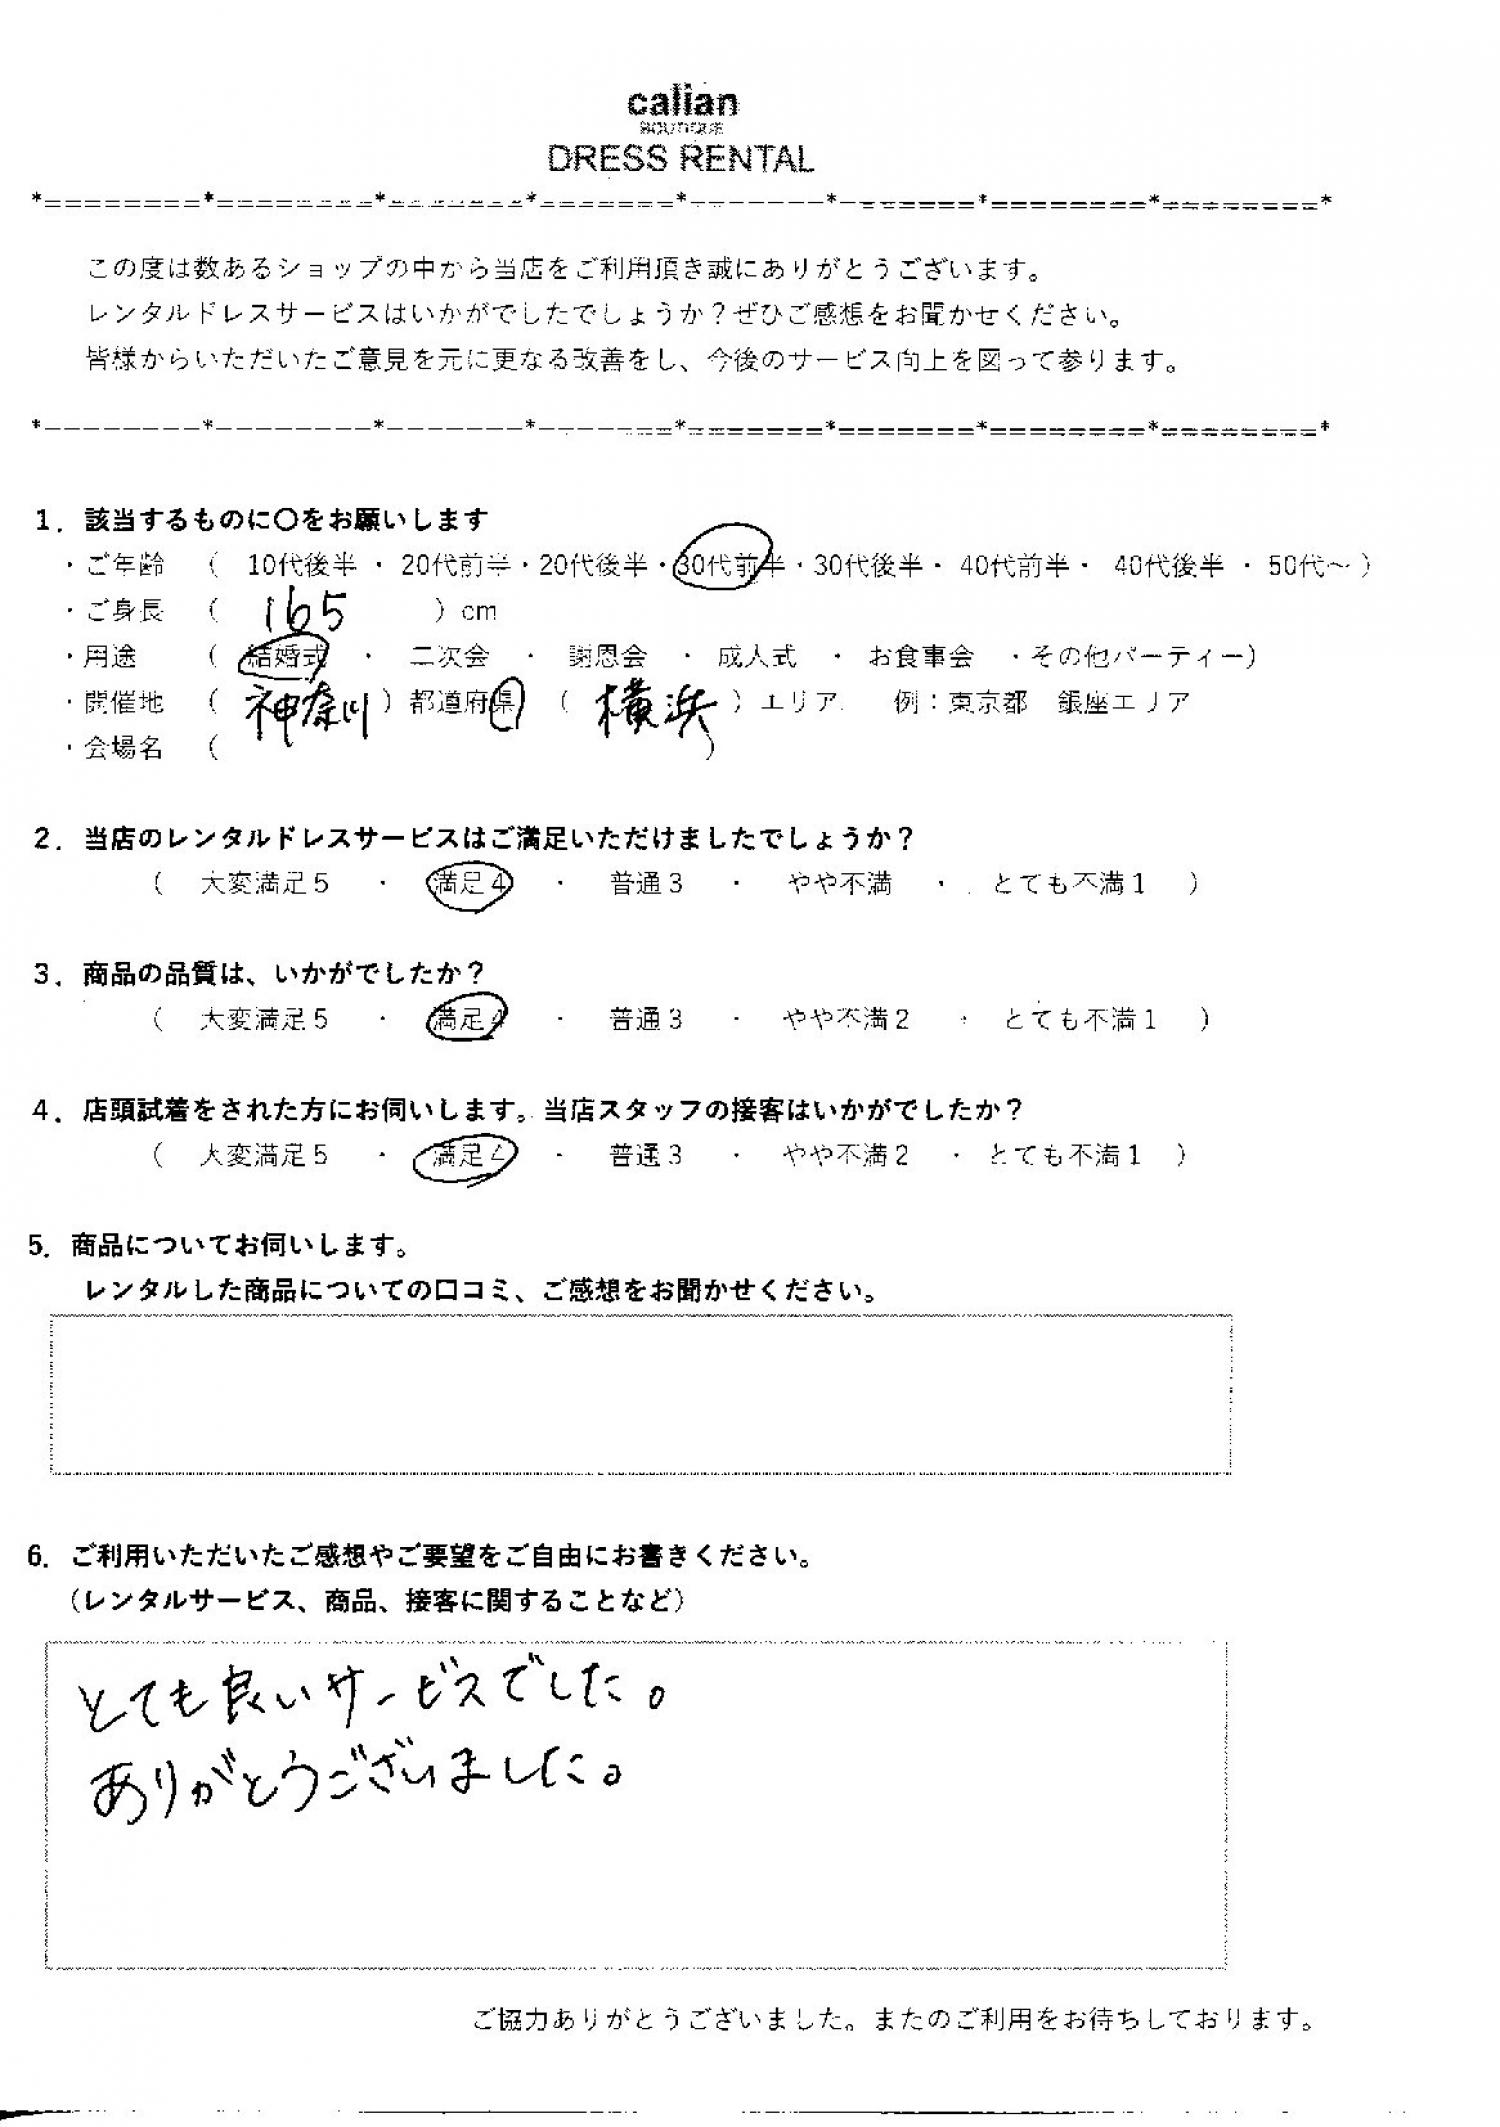 calian
BOUTIQUE
DRESS RENTAL
*========*========*=======*=======*-------*-======*========*========*
この度は数あるショップの中から当店をご利用頂き誠にありがとうございます。
レンタルドレスサービスはいかがでしたでしょうか？ぜひご感想をお聞かせください。
皆様からいただいたご意見を元に更なる改善をし、今後のサービス向上を図って参ります。
*--------*--------*-------*-------*=======*=======*========*========*
1．該当するものに〇をお願いします
・ご年齢 （ 10代後半 ・ 20代前半・20代後半・30代前半・30代後半・ 40代前半・ 40代後半 ・ 50代～ ）
・ご身長 （ 165 ）cm
・用途 （ 結婚式 ・ 二次会 ・ 謝恩会 ・ 成人式 ・ お食事会 ・その他パーティー）
・開催地 （ 神奈川 ）都道府県 （ 横浜 ）エリア 例：東京都 銀座エリア
・会場名 （ ）
2．当店のレンタルドレスサービスはご満足いただけましたでしょうか？
（ 大変満足５ ・ 満足４ ・ 普通３ ・ やや不満 ・ とても不満１ ）
3．商品の品質は、いかがでしたか？
（ 大変満足５ ・ 満足４ ・ 普通３ ・ やや不満２ ・ とても不満１ ）
4．店頭試着をされた方にお伺いします。当店スタッフの接客はいかがでしたか？
（ 大変満足５ ・ 満足４ ・ 普通３ ・ やや不満２ ・ とても不満１ ）
5．商品についてお伺いします。
レンタルした商品についての口コミ、ご感想をお聞かせください。
6．ご利用いただいたご感想やご要望をご自由にお書きください。
（レンタルサービス、商品、接客に関することなど）
とても良いサービスでした。
ありがとうございました。
ご協力ありがとうございました。またのご利用をお待ちしております。